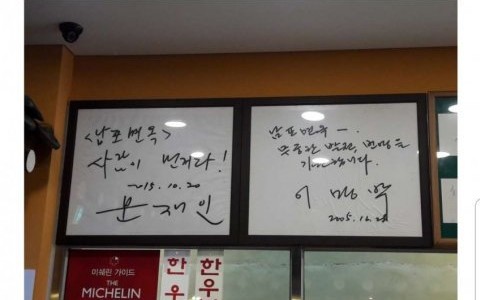 <남포면옥>
사람이 먼저다!
2015.10.20
문재인
남포면옥 ㅡ.
무궁한 발전, 번영을
기원합니다.
이 명 박
2005.12.28
미쉐린 가이드
THE
MICHELIN
한우
한우